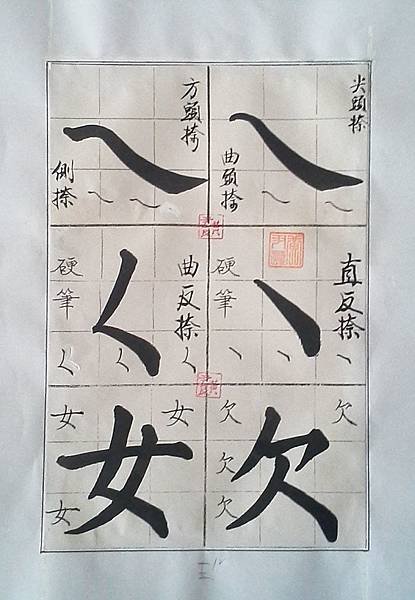 尖頭捺
曲頭捺
方頭捺
側捺
直反捺
硬筆
曲反捺
硬筆
く
く
く
欠
欠
欠
欠
欠
女
女
女
女